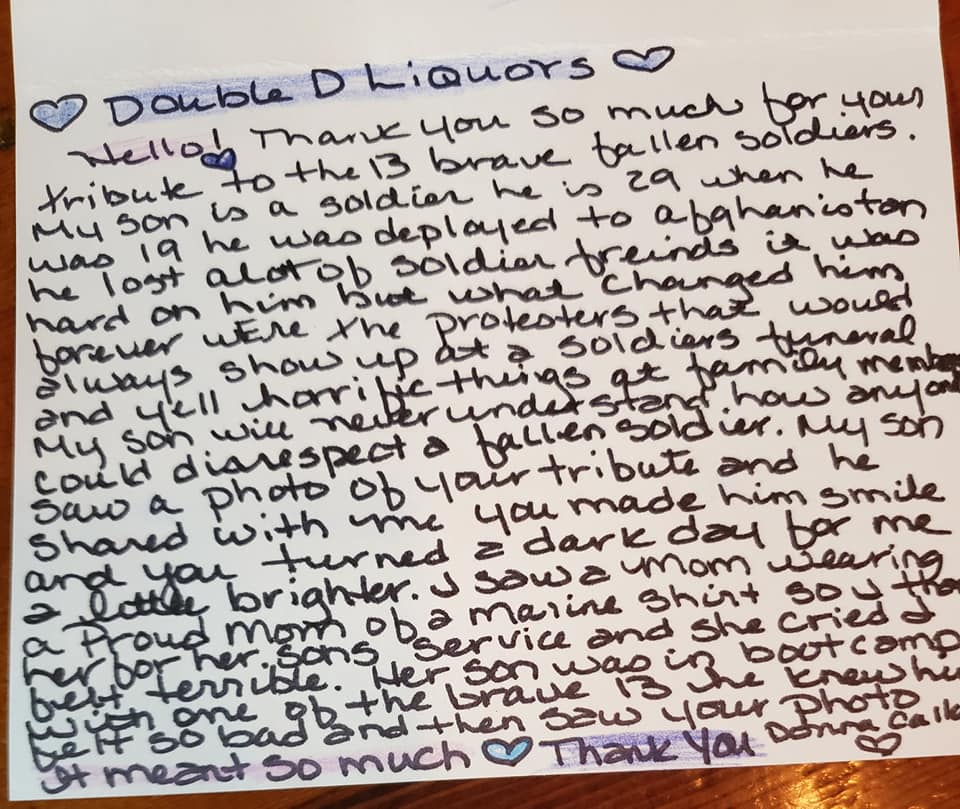 Double D Liquors
Hello! Thank you so much for your
tribute to the 13 brave fallen soldiers.
My son is a soldier he is 29 when he
was 19 he was deployed to afghanistan
he lost alot of soldier freinds it was
hard on him but what changed him
forever were the protesters that would
always show up at a soldiers funeral
and yell horrific things at family member
My son will never understand how anyone
could disrespect a fallen soldier. My son
saw a photo of your tribute and he
shared with me you made him smile
and you turned a dark day for me
a little brighter. I saw a mom wearing
a Proud mom of a marine shirt so I
her for her sons service and she cried I
felt terrible. Her son was in bootcamp
with one of the brave 13 he knew
felt so bad and then saw your photo
It meant so much Thank You Donna